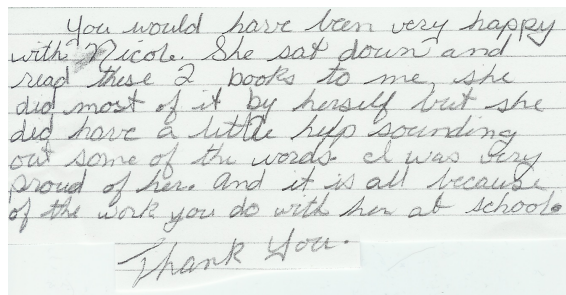 You would have been very happy
with Nicole. She sat down and
read these 2 books to me, she
did most of it by herself but she
did have a little help sounding
out some of the words. I was very
proud of her. And it is all because
of the work you do with her at school.
Thank You.